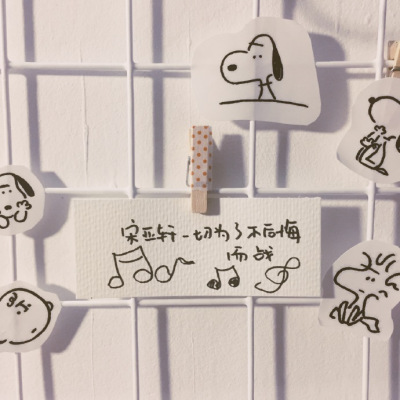 宋亚轩一切为了不后悔
而战